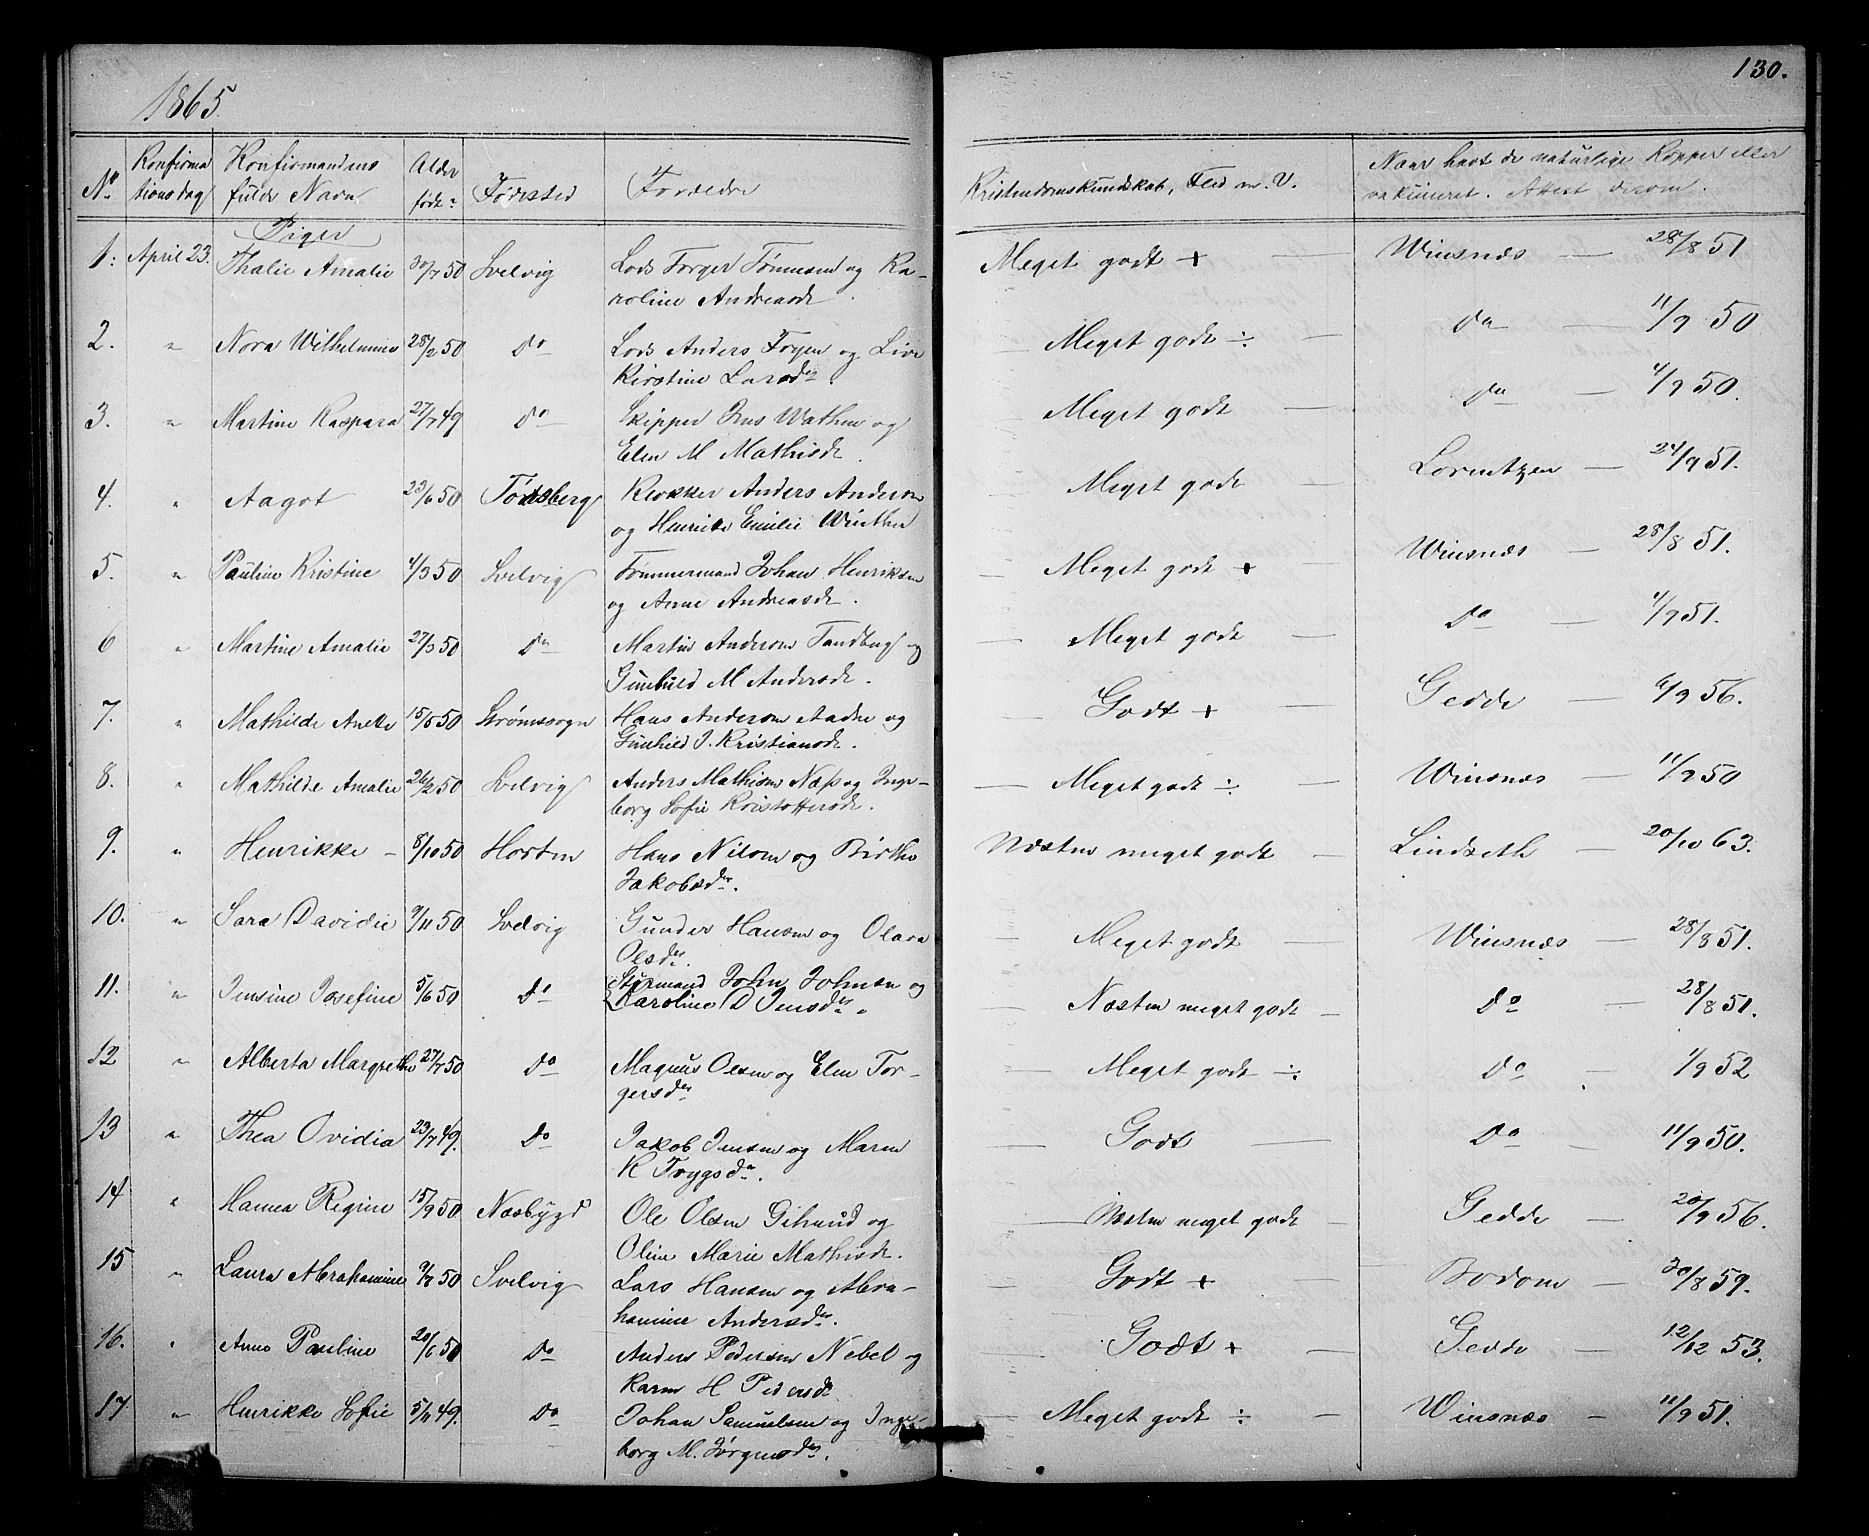 1865.
130.
No. Konfirmationsdag Konfirmandens fulde Navn Alder født Fødested Forældre Kristendomskundskab, Flid m. V. Naar havt de naturlige Kopper eller vakcineret. Attest derom.
Piger
1. April 23. Thalie Amalie 30/7 50 Svelvig Lods Torger Tønnesen og Ka- Meget godt + — Winsnæs — 28/8 51
roline Andreasd.
2. " Nora Wilhelmine 28/2 50 Do Lods Anders Torgen og Live — Meget godt ÷ — Do — 11/9 50
Kirstine Larsdr.
3. " Martine Kaspara 27/7 49 Do Skipper Jens Wathne og — Meget godt — Do — 4/9 50.
Elen M Mathisdr.
4. " Aagot 23/6 50 Tønsberg Klokker Anders Andersen — Meget godt — Lorentzen — 24/9 51.
og Henrikke Emilie Winther
5. " Pauline Kristine 4/3 50 Svelvig Tømmermand Johan Henriksen — Meget godt + — Winsnæs — 28/8 51.
og Anne Andreasdr.
6 " Martine Amalie 27/3 50 Do Martin Andersen Tandberg og — Meget godt — Do — 1/9 51.
Gunhild M Andersdr.
7. " Mathilde Anette 15/5 50 Strømssogn Hans Andersen Aadne og — Godt + Gedde — 6/9 56.
Gunhild J. Kristiansdr.
8. " Mathilde Amalie 26/2 50 Svelvig Anders Mathisen Næss og Inge- — Meget godt ÷ — Winsnæs — 11/9 50
borg Sofie Kristoffersdr.
9. " Henrikke — 8/10 50 Horten Hans Nilsen og Birthe Næsten meget godt — Lindseth — 20/10 63.
Jakobsdr.
10. " Sara Davidie 9/11 50 Svelvig Gunder Hansen og Olava — Meget godt — Winsnæs — 28/8 51.
Olsdr.
11. " Jensine Josefine 5/6 50 Do Styrmand John Johnsen og — Næsten meget godt — Do — 28/8 51.
Karoline D Jensdr.
12 " Alberta Margrethe 27/7 50 Do Magnus Olsen og Elen Tor- — Meget godt ÷ Do — 1/9 52
gersdr
13 " Thea Ovidia 23/7 49. Do Jakob Jensen og Maren — Godt — Do — 11/9 50.
K Trygsdr.
14 " Hanna Regine 15/9 50 Næsbygd Ole Olsen og — Næsten meget godt — Gedde — 20/9 56.
Oline Marie Mathisdr.
15 " Laura Abrahamine 9/7 50 Svelvig Lars Hansen og Abra- — Godt + Bodom — 30/8 59.
hamine Andersdr.
16. " Anne Pauline 20/6 50 Do Anders Pedersen Nebel og — Godt + — Gedde — 12/12 53.
Karen H Pedersdr
17 " Henrikke Sofie 5/11 49. Do Johan Samuelsen og Inge- — Meget godt ÷ — Winsnæs — 11/9 51.
borg M. Jørgensdr.